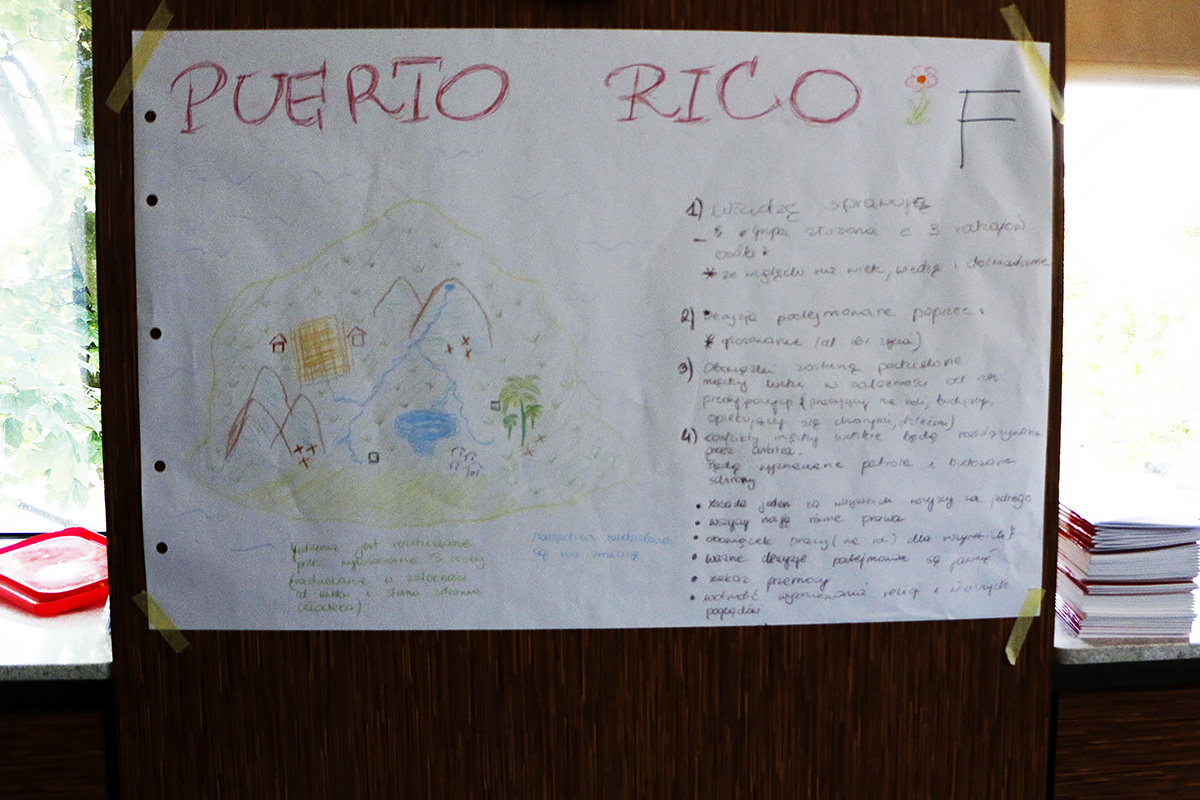 PUERTO RICO
F
1) Władzę sprawuje
- grupa złożona z 3 rodzajów
osób:
* ze względu na wiek, wiedzę i doświadczenie
2) Decyzje podejmowane poprzez:
* głosowanie (od 16 r życia)
3) Obowiązki zostaną podzielone
między ludzi w zależności od ich
predyspozycji (pracujący na roli, budujący,
opiekujący się chorymi, dziećmi)
4) Konflikty między ludźmi będą rozwiązywane
przez
Będą wyznawane patrole i budowane
schrony
• Zasada jeden za wszystkich wszyscy za jednego
• wszyscy mają równe prawa
• obowiązek pracy (na roli) dla wszystkich
• ważne decyzje podejmowane są jawnie
• zakaz przemocy
• wolność wyznawania religii i własnych
poglądów
Jedzenie jest rozdzielane
przez wyznaczone 3 osoby
(rozdzielane w zależności
od wieku i stanu zdrowia
człowieka)
Narzędzia rozdzielane
są na zmianę